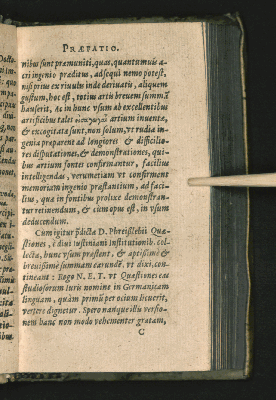 PRÆFATIO.
nibus sunt præmuniti, quas, quantumuis a-
cri ingenio præditus, adsequi nemo potest,
nisi prius ex riuulis inde deriuatis, aliquem
gustum, hoc est, totius artis breuem summã
hauserit, Ac in hunc vsum ab excellentibus
artificibus tales artium inuentæ,
& excogitatæ sunt, non solum, vt rudia in-
genia præparent ad longiores & difficilio-
res disputationes, & demonstrationes, qui-
bus artium fontes confirmantur, facilius
intelligendas, verumetiam vt confirment
memoriam ingenio præstantium, ad faci-
lius, quæ in fontibus prolixe demonstran-
tur retinendum, & cum opus est, in vsum
deducendum.
Cum igitur prædictæ D. Phreislebii Quæ-
stiones, è diui Iustiniani Institutionib. col-
lectæ, hunc vsum præstent, & aptissimè &
breuissimè summam earundẽ, vt dixi, con-
tineant: Rogo N. E. T. vt Quæstiones eas
studiosorum iuris nomine in Germanicam
linguam, quàm primùm per ocium licuerit,
vertere dignetur. Spero nanque illi versio-
nem hanc non modo vehementer gratam,
C